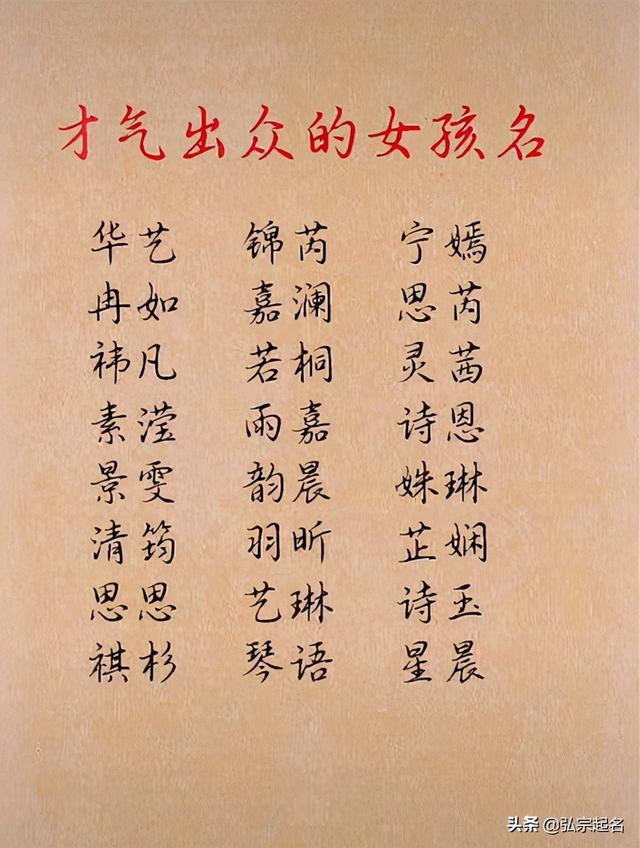 才气出众的女孩名
华艺 锦芮 宁嫣
冉如 嘉澜 思芮
祎凡 若桐 灵茜
素滢 雨嘉 诗恩
景雯 韵晨 姝琳
清筠 羽昕 芷娴
思思 艺琳 诗玉
祺杉 琴语 星晨
头条 @弘宗起名